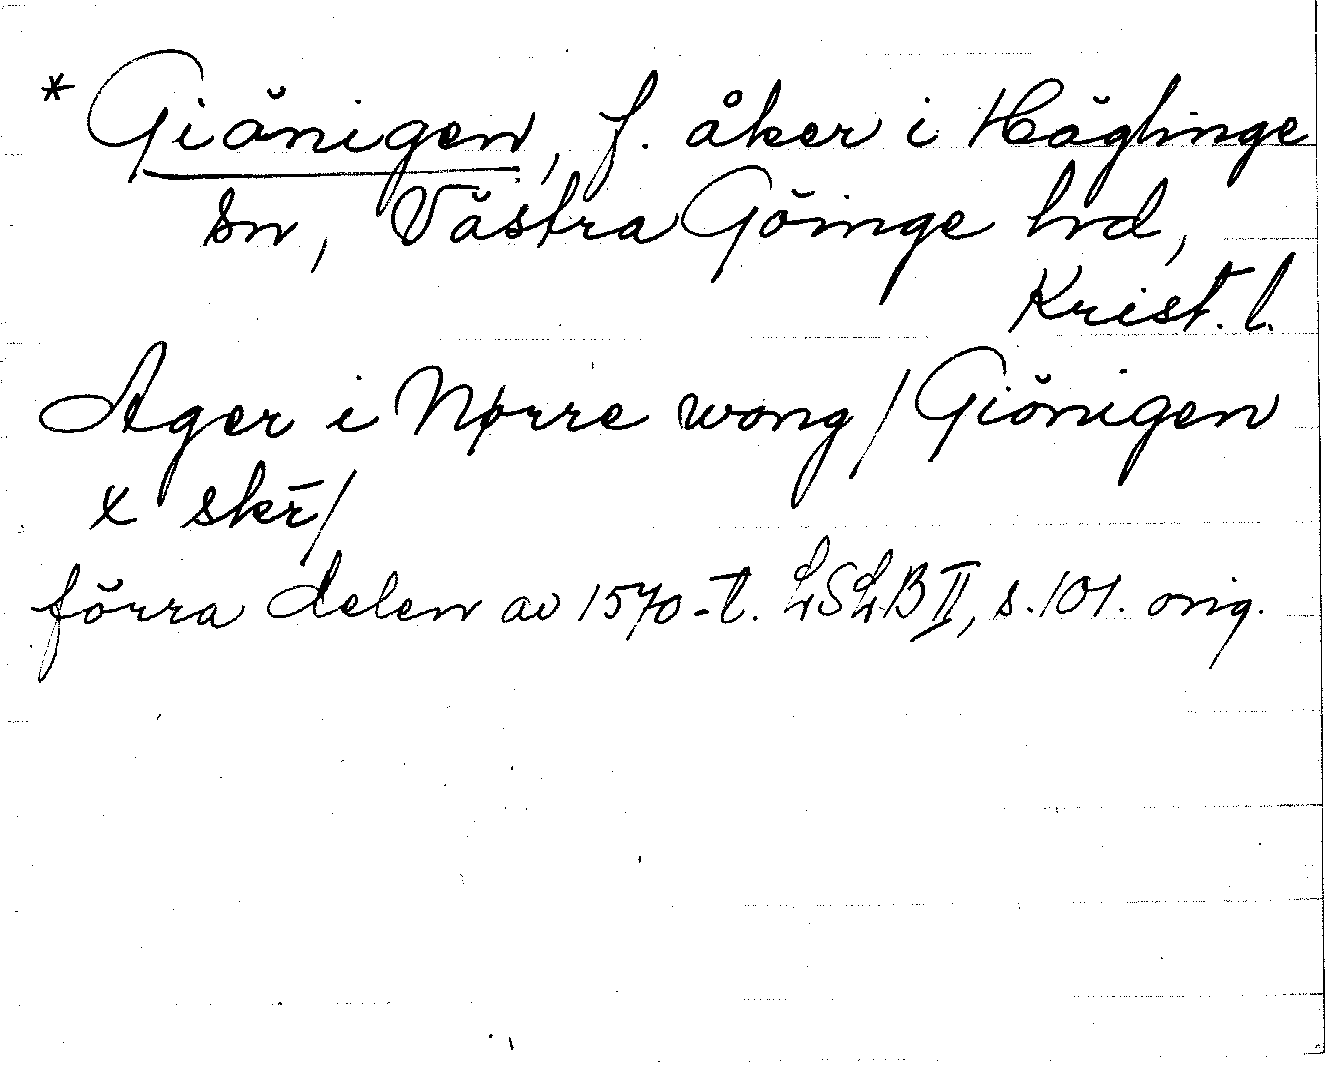 * Giönigen, f. åker i Häglinge
sn, Västra Göinge hd,
Krist. l.
Ager i Nørre wong / Giönigen
x skr̄ /
förra delen av 1570-t. LSLB II, s. 101. orig.